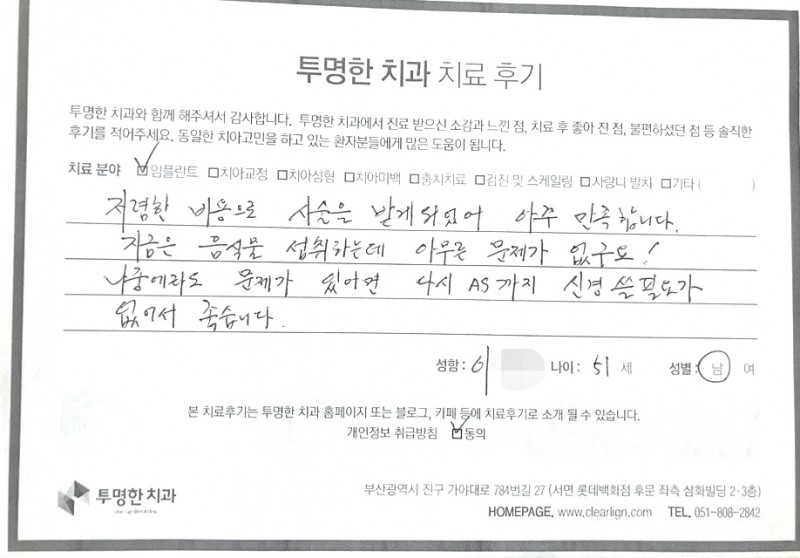 투명한 치과 치료 후기
투명한 치과와 함께 해주셔서 감사합니다. 투명한 치과에서 진료 받으신 소감과 느낀 점, 치료 후 좋아 진 점, 불편하셨던 점 등 솔직한
후기를 적어주세요. 동일한 치아고민을 하고 있는 환자분들에게 많은 도움이 됩니다.
치료 분야 ☑임플란트 □치아교정 □치아성형 □치아미백 □충치치료 □검진 및 스케일링 □사랑니 발치 □기타 ( )
저렴한 비용으로 시술을 받게되었어 아주 만족합니다.
지금은 음식물 섭취하는데 아무른 문제가 없구요!
나중에라도 문제가 있어면 다시 AS까지 신경 쓸 필요가
없어서 좋습니다.
성함 : 이 나이 : 51 세 성별 : 남 여
본 치료후기는 투명한 치과 홈페이지 또는 블로그, 카페 등에 치료후기로 소개 될 수 있습니다.
개인정보 취급방침 ☑동의
투명한 치과
부산광역시 진구 가야대로 784번길 27 (서면 롯데백화점 후문 좌측 삼화빌딩 2·3층)
HOMEPAGE. www.clearlign.com TEL. 051-808-2842